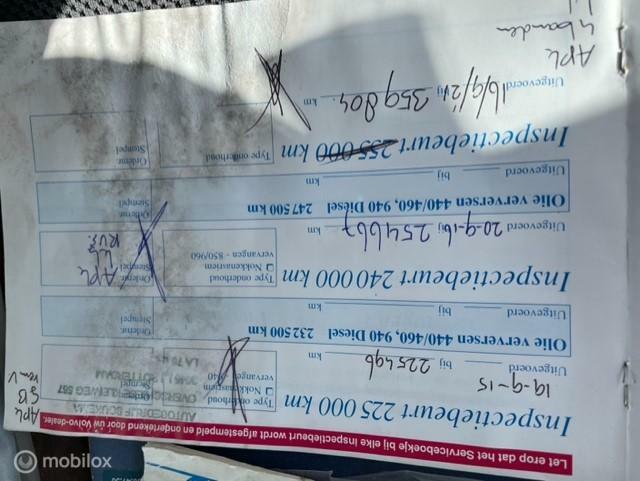 Let erop dat het Serviceboekje bij elke inspectiebeurt wordt afgestempeld en ondertekend door Uw Volvo-dealer.
Inspectiebeurt 225 000 km
Uitgevoerd 19-9-15 bij 225496 km
Type onderhoud
Nokkenasriem
vervangen - 940
Ordernr.
Stempel
AUTOBEDRIJF
OVERSCHIESEWEG
APK
Olie verversen 440/460, 940 Diesel 232 500 km
Uitgevoerd bij km
Ordernr.
Stempel
Inspectiebeurt 240 000 km
Uitgevoerd 20-9-16 bij 254667 km
Type onderhoud
Nokkenasriem
vervangen - 850/960
Ordernr.
Stempel
APK
Olie verversen 440/460, 940 Diesel 247 500 km
Uitgevoerd bij km
Ordernr.
Stempel
Inspectiebeurt 255 000 km
Uitgevoerd 16/9/21 bij 359804 km
Type onderhoud
Ordernr.
Stempel
APK
4 banden
mobilox